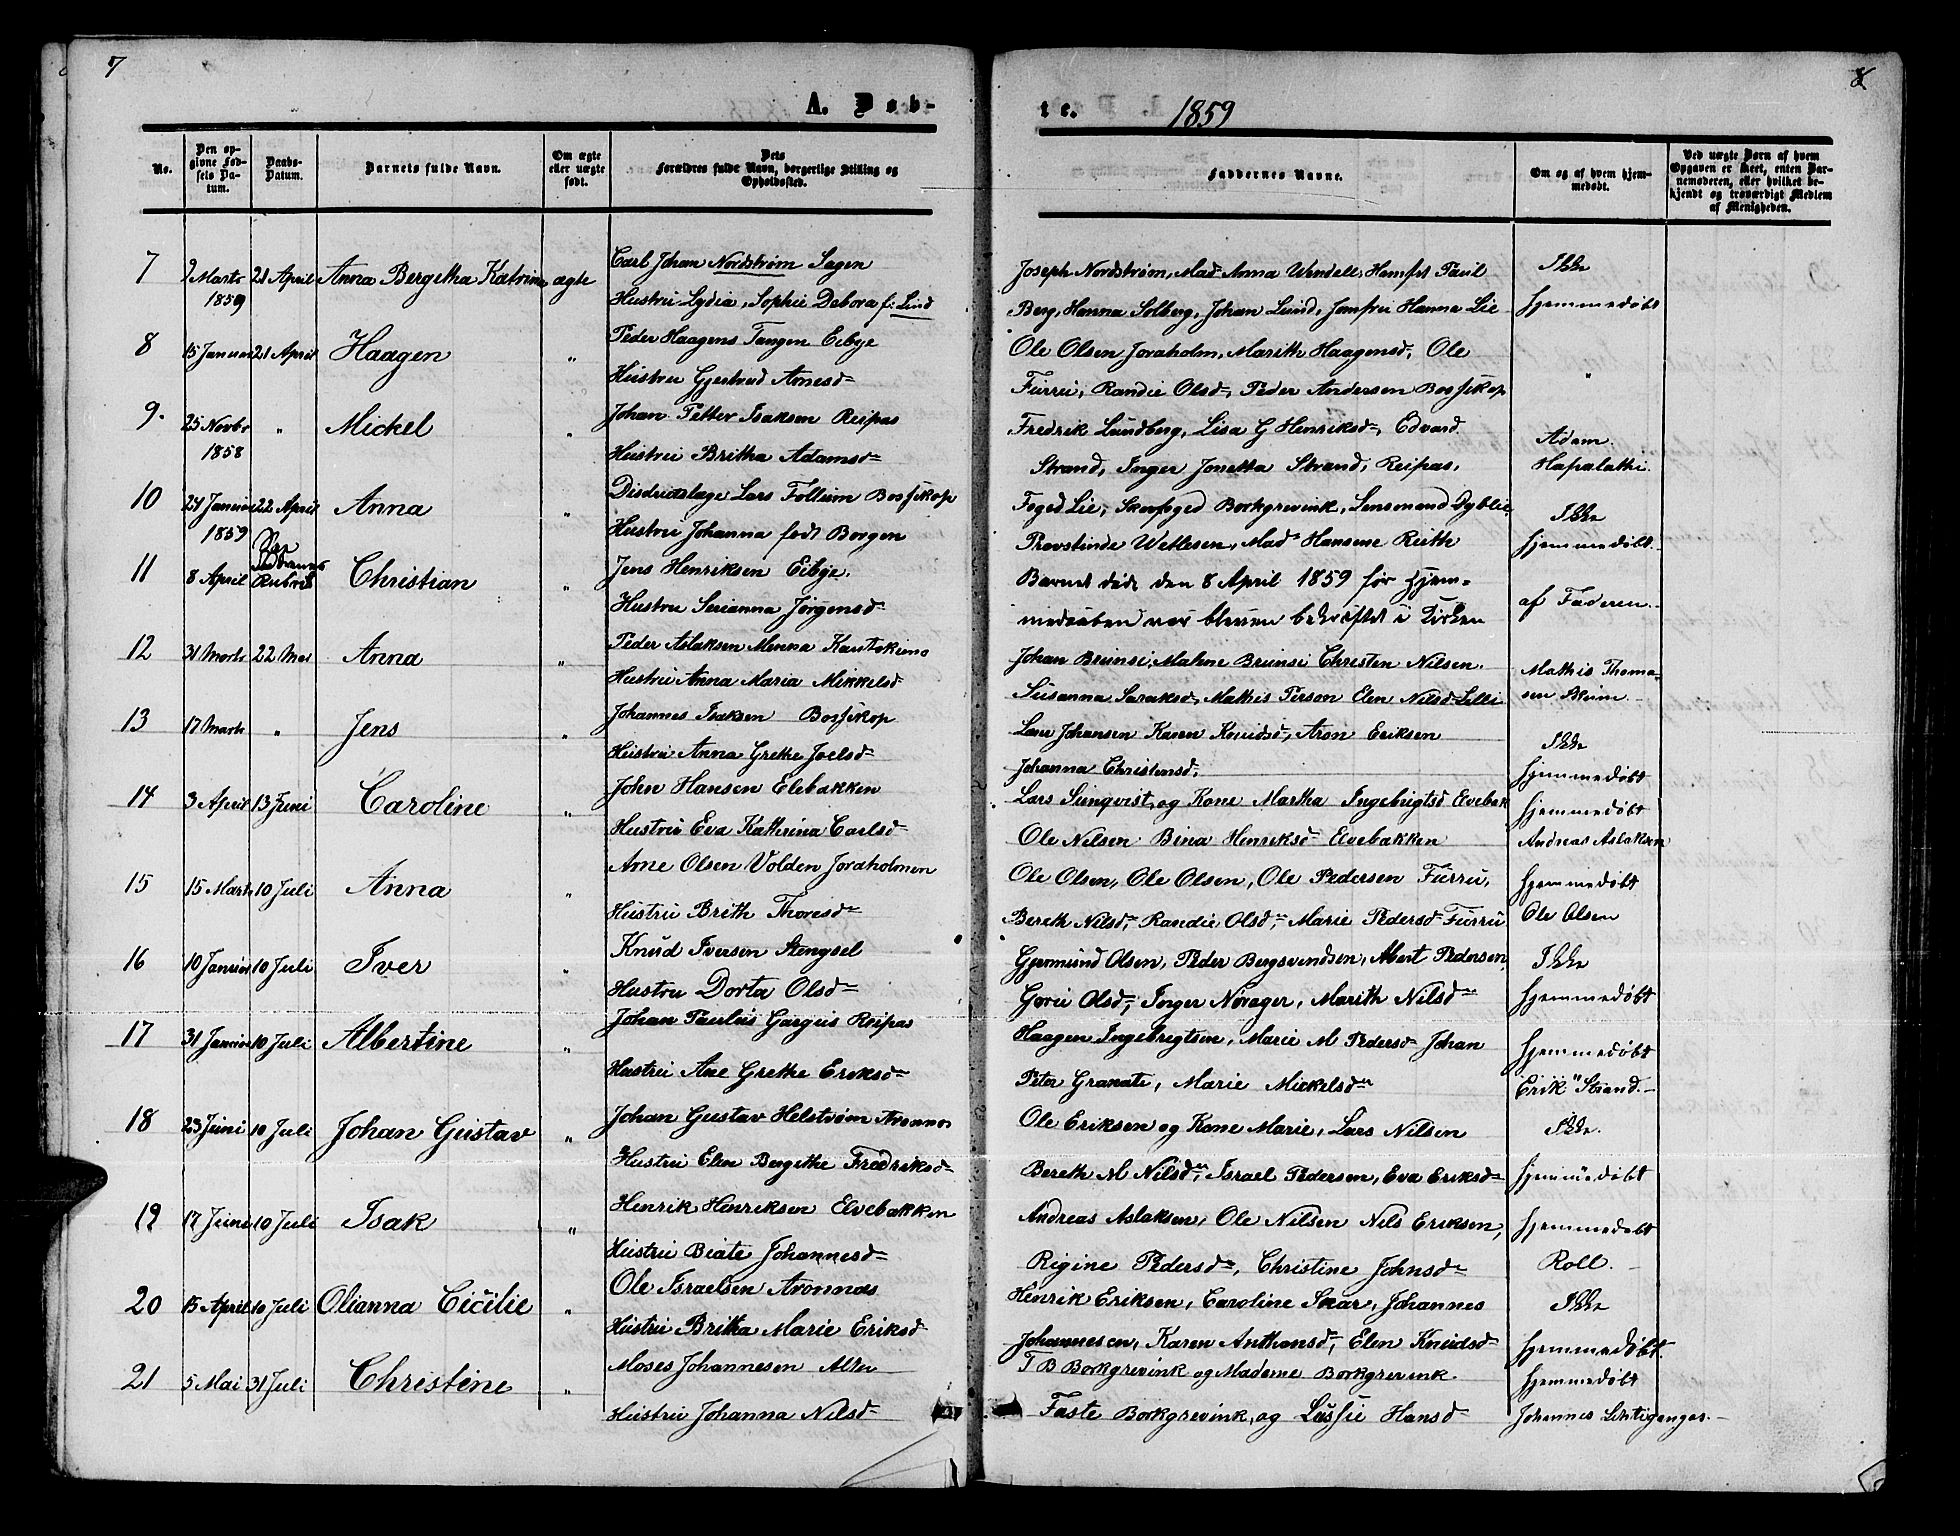 7
8
A. Døb-
te.
1859
No.
Den op-
givne Fød-
sels Da-
tum.
Daabs-
Datum.
Barnets fulde Navn.
Om ægte
eller uægte
født.
Dets
Forældres fulde Navn, borgerlige Stilling og
Opholdssted.
Faddernes Navne.
Om og af hvem hjem-
medøbt.
Ved uægte Børn af hvem
Opgaven er skeet, enten Bar-
nemoderen, eller hvilket be-
kjendt og troværdigt Medlem
af Menigheden.
7 9 Marts 21 April Anna Bergetha Katrina ægte Carl Johan Nordstrøm Sagen Joseph Nordstrøm, Mad. Anna Wendell, Paul Ikke
1859 Hustru Lydia, Sophie Debora f: Lund Berg, Hanna Solberg, Johan Lund, Jomfru Hanna Lie hjemmedøbt
8 15 Januar 21 April Haagen " Peder Haagens Tangen Eibye Ole Olsen Joraholm, Marith Haagensd, Ole "
Hustru Gjertrud Arnesd Furru, Randie Olsd, Peder Andersen Bossekop
9. 25 Novbr " Mickel " Johan Petter Isaksen Reipas Fredrik Lundberg, Lisa G Henriksd, Edvard Adam
1858 Hustru Britha Adamsd Strand, Inger Jonetta Strand, Reipas, Hapalathi
10 24 Januar 22 April Anna " Distriktslæge Lars Follum Bossekop Foged Lie, Skovfoged Borkgrevink, Lensmand Dyblie Ikke
1859 Hustru Johanna født Borgen Provstinde Wetlesen, Mad. Hansine Rieth hjemmedøbt
11 8 April Rubrik Christian " Jens Henriksen Eibye. Barnet døde den 8 April 1859 før Hjem-
Hustru Serianna Jørgensd medaaben var bleven bekræftet i Kirken af Faderen.
12 31 Marts 22 Mai Anna " Peder Aslaksen Menna Kautokeino Johan Brunsi, Malene Brunsi Christen Nilsen. Mathis Thoma
Hustru Anna Maria Mikkelsd Susanna Saraksd, Mathis Person Elen Nilsd Lilli sen
13 17 Marts " Jens " Johannes Isaksen Bossekop Lars Johansen Karen Knudsd, Aron Eriksen Ikke
Hustru Anna Grethe Joelsd Johanna Christensd, hjemmedøbt
14 3 April 13 Juni Caroline " John Hansen Elebakken Lars Sunqvist, og Kone Martha Ingebrigtsd Elvebak hjemmedøbt
Hustru Eva Katherina Carlsd Ole Nilsen Bina Henriksd Elvebakken Andreas Aslaksen
15 15 Marts 10 Juli Anna " Arne Olsen Volden Joraholmen Ole Olsen, Ole Olsen, Ole Pedersen Furru, hjemmedøbt
Hustru Brith Thoresd Bereth Nilsd, Randie Olsd, Marie Pedersd Furru Ole Olsen
16 10 Januar 10 Juli Iver " Knud Iversen Stengsel Gjermund Olsen, Peder Bergsvendsen, Abert Pedersen, Ikke
Hustru Dorta Olsd Goru Olsd, Inger Norager, Marith Nilsd hjemmedøbt
17 31 Januar 10 Juli Albertine " Johan Paulus Gargus Reipas Haagen Ingebrigtsen, Marie M Pedersd Johan hjemmedøbt
Hustru Ane Grethe Eriksd Peter Granate, Marie Mickelsd Erik Strand.
18 23 Juni 10 Juli Johan Gustav " Johan Gustav Helstrøm Aronnes Ole Eriksen og Kone Marie, Lars Nilsen Ikke.
Hustru Elen Bergithe Fredriksd Bereth M Nilsd, Israel Pedersen, Eva Eriksd hjemmedøbt
19 17 Juni 10 Juli Isak " Henrik Henriksen Elvebakken Andreas Aslaksen, Ole Nilsen Nils Eriksen, hjemmedøbt
Hustru Beate Johannesd Rigine Pedersd, Christine Johnsd Roll.
20 15 April 10 Juli Olianna Cicilie " Ole Israelsen Aronnas Henrik Eriksen, Caroline Skar, Johannes Ikke
Hustru Britha Marie Eriksd Johannesen, Karen Anthonsd, Elen Knudsd hjemmedøbt.
21 5 Mai 31 Juli Christine " Moses Johannesen Alten T B Borkgrevink og Madame Borkgrevink. hjemmedøbt
Hustru Johanna Nilsd Faste Borkgrevink, og Lussie Hansd Johannes